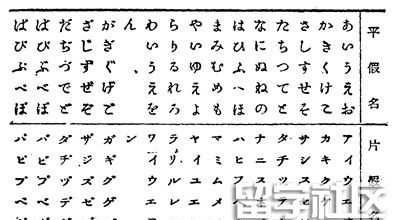 平假名
あいうえお
かきくけこ
さしすせそ
たちつてと
なにぬねの
はひふへほ
まみむめも
やいゆえよ
らりるれろ
わいうえを
ん
がぎぐげご
ざじずぜぞ
だぢづでど
ばびぶべぼ
ぱぴぷぺぽ
片假
アイウエ
カキクケ
サシスセ
タチツテ
ナニヌネ
ハヒフヘ
マミムメ
ヤイユエ
ラリルレ
ワイウエ
ン
ガギグゲ
ザジズゼ
ダヂヅデ
バビブベ
パピプペ
留学社区